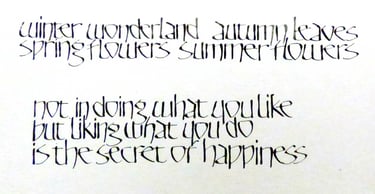 winter wonderland autumn leaves
spring flowers summer flowers
not in doing what you like
but liking what you do
is the secret of happiness